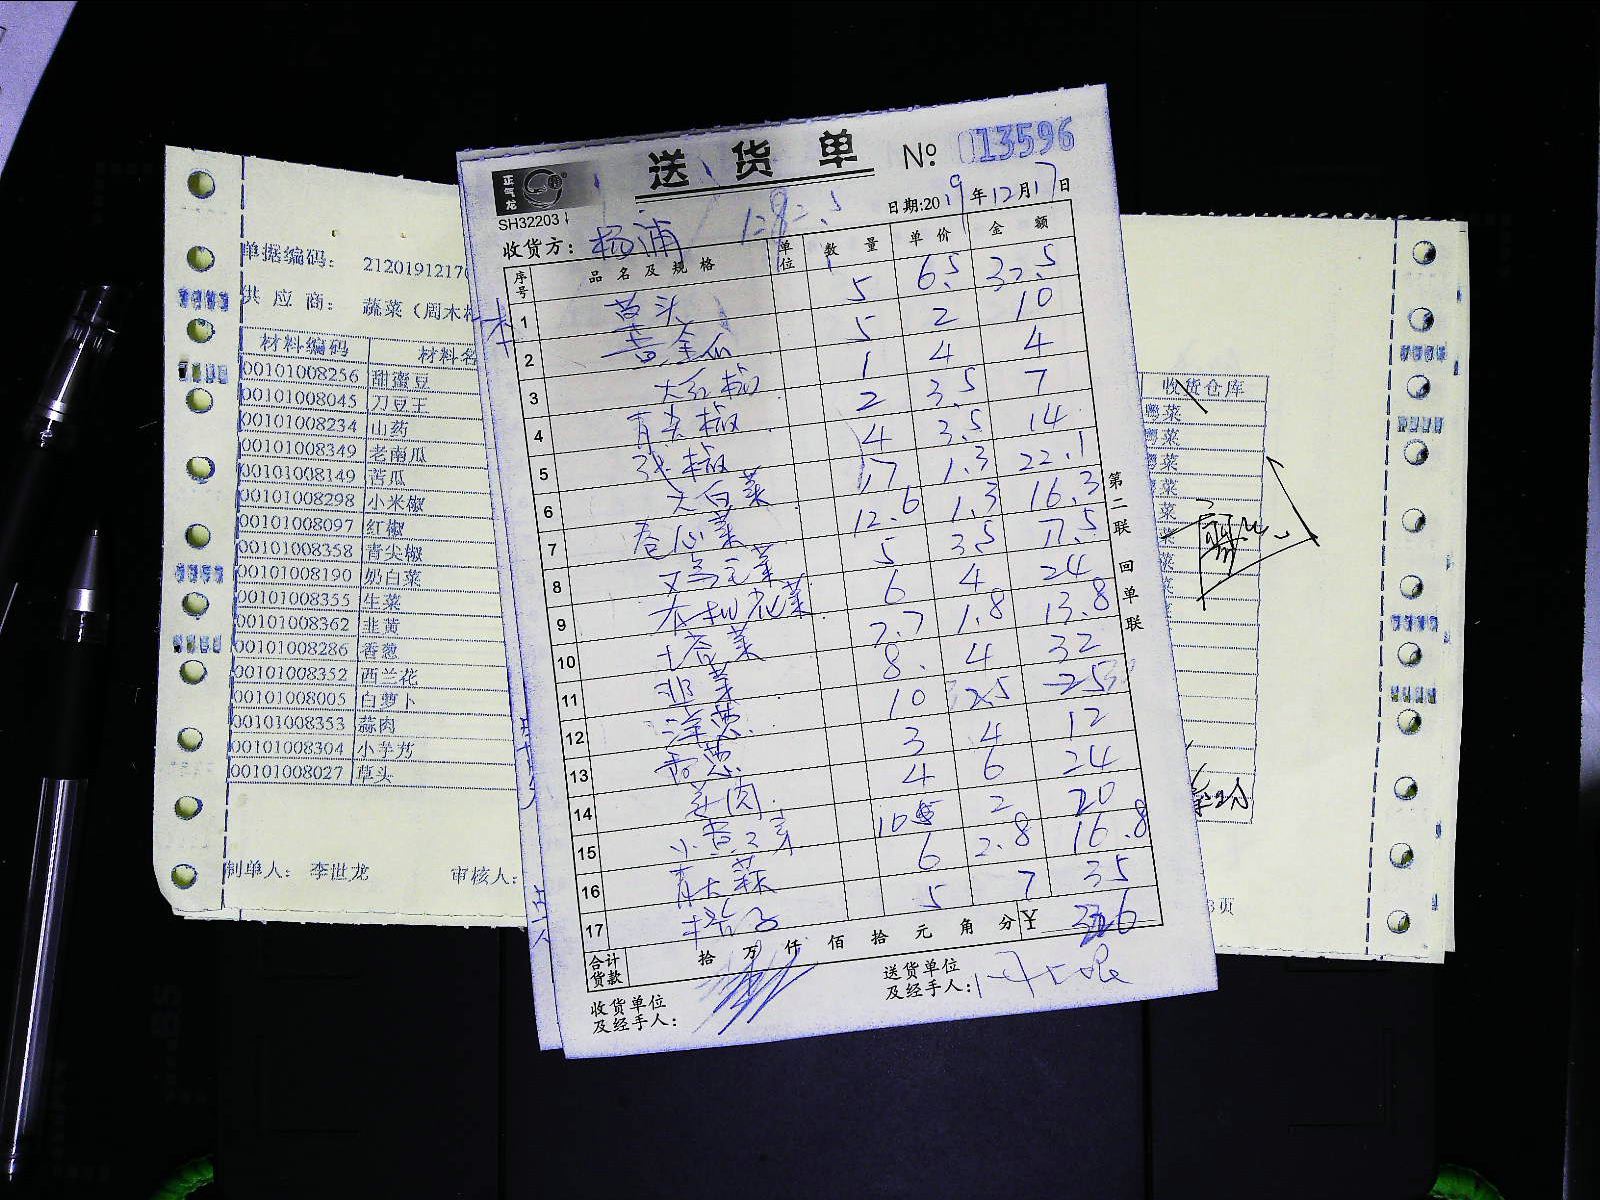 送货单 № 013596
正气龙
SH32203
日期:2019年12月17日
收货方: 杨浦
序号 品名及规格 单位 数量 单价 金额
1 草头 5 6.5 32.5
2 黄金瓜 5 2 10
3 大红椒 1 4 4
4 青尖椒 2 3.5 7
5 4 3.5 14
6 大白菜 17 1.3 22.1
7 卷心菜 12.6 1.3 16.3
8 5 3.5 17.5
9 有机花菜 6 4 24
10 塔菜 7.7 1.8 13.8
11 8 4 32
12 洋葱 10 2.5 25
13 香葱 3 4 12
14 4 6 24
15 10 2 20
16 6 2.8 16.8
17 5 7 35
合计货款 拾 万 仟 佰 拾 元 角 分 ¥
收货单位及经手人:
送货单位及经手人:
第二联 回单联
单据编码: 2120191217
供应商: 蔬菜（周木
材料编码 材料名
00101008256 甜蜜豆
00101008045 刀豆王
00101008234 山药
00101008349 老南瓜
00101008149 苦瓜
00101008298 小米椒
00101008097 红椒
00101008358 青尖椒
00101008190 奶白菜
00101008355 生菜
00101008362 韭黄
00101008286 香葱
00101008352 西兰花
00101008005 白萝卜
00101008353 蒜肉
00101008304 小芋艿
00101008027 草头
制单人: 李世龙 审核人:
收货仓库
粤菜
粤菜
粤菜
菜
菜
菜
菜
3页